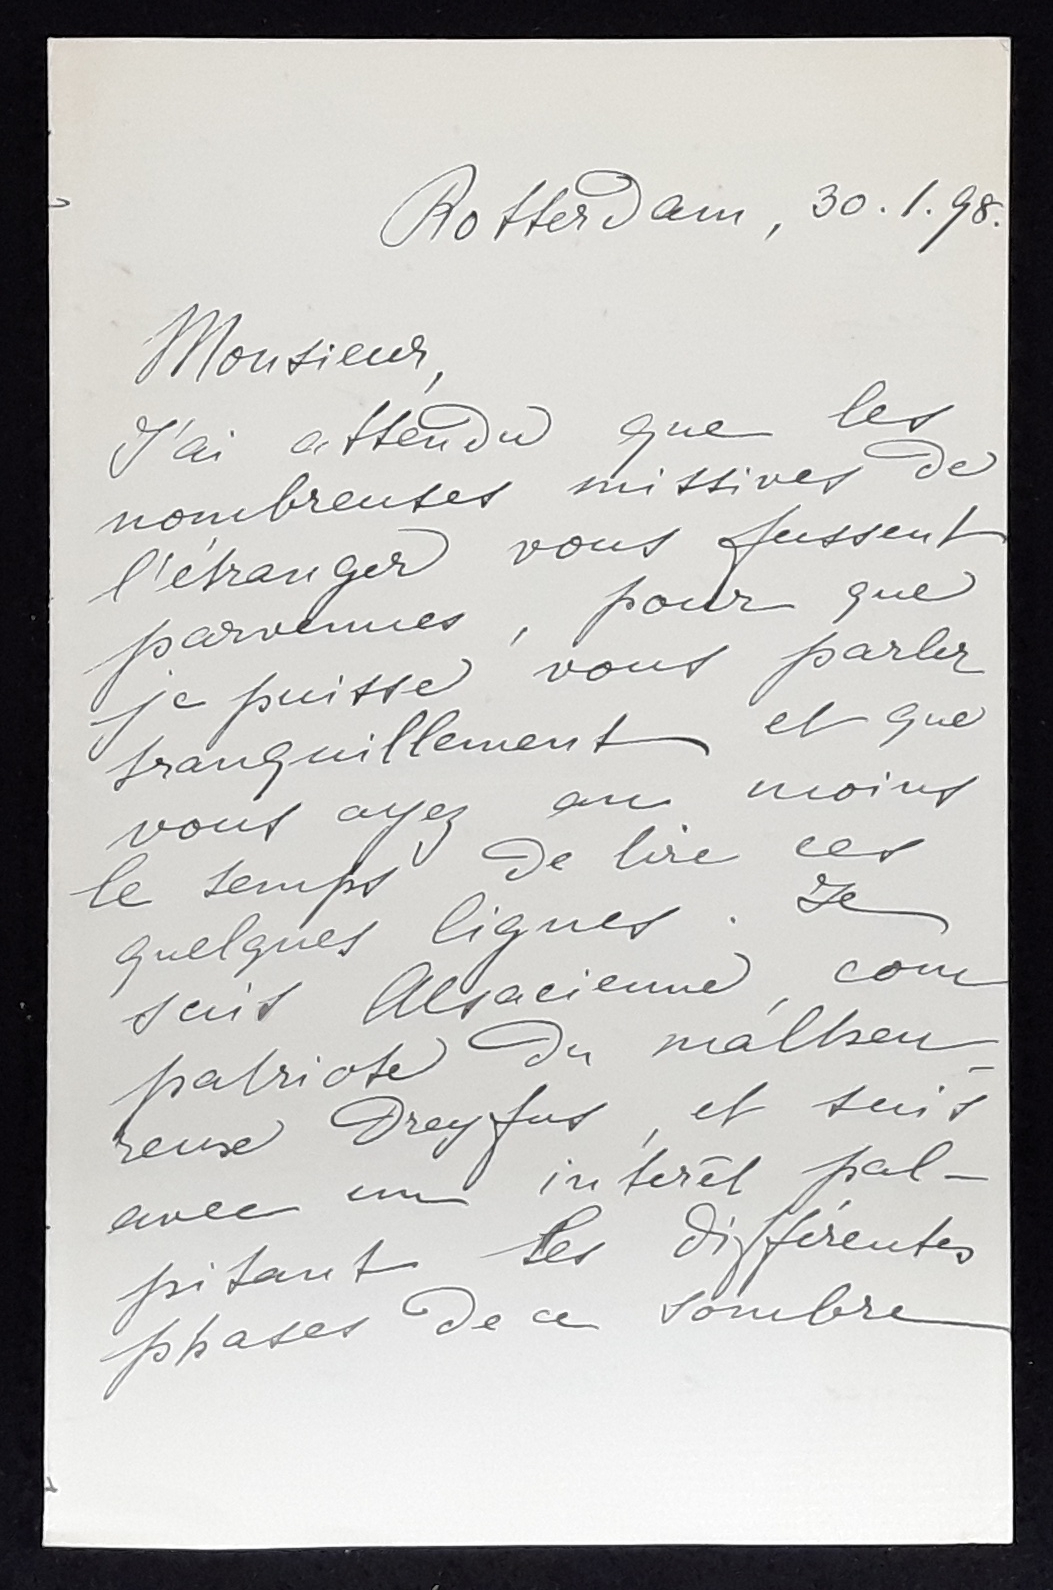 Rotterdam, 30.1.98.
Monsieur,
J'ai attendu que les
nombreuses missives de
l'étranger vous fussent
parvenues, pour que
je puisse vous parler
tranquillement et que
vous ayez au moins
le temps de lire ces
quelques lignes. Je
suis Alsacienne, com
patriote du malheu-
reux Dreyfus, et suis
avec un intérêt pal-
pitant les différentes
phases de ce sombre